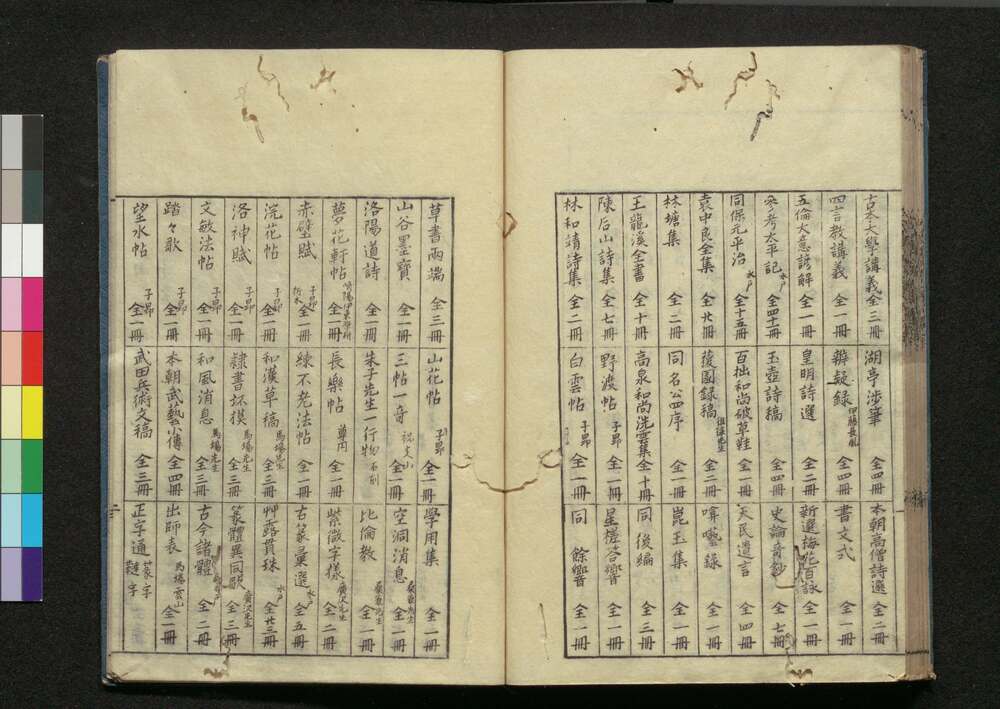 古本大學講義 全三冊
四言教講義 全一冊
五倫大意諺解 全一冊
参考太平記 水戸 全四十一冊
同保元平治 水戸 全十五冊
袁中良全集 全廿冊
林塘集 全二冊
王龍溪全書 全十冊
陳后山詩集 全七冊
林和靖詩集 全二冊
湖亭渉筆 全四冊
辨疑録 伊藤長胤 全四冊
皇明詩選 全一冊
玉壺詩稿 全四冊
百拙和尚破草鞋 全一冊
蘐園録稿 徂徠先生 全二冊
同名公四序 全一冊
高泉和尚洗雲集 全十冊
野渡帖 子昂 全一冊
白雲帖 子昂 全一冊
本朝高僧詩選 全二冊
書文式 全一冊
新選梅花百詠 全一冊
史論奇鈔 全七冊
天民遺言 全四冊
嚊藝録 全一冊
崑玉集 全一冊
同後編 全三冊
星槎答響 全一冊
同 餘響 全一冊
草書両端 全三冊
山谷墨寶 全一冊
洛陽道詩 全一冊
夢花軒帖 全一冊
赤壁賦 子昂 全一冊
浣花帖 子昂 全一冊
洛神賦 子昂 全一冊
文敏法帖 子昂 全一冊
踏々歌 子昂 全一冊
望水帖 子昂 全一冊
山花帖 子昂 全一冊
三帖一奇 祝 文 山 全一冊
朱子先生一行物 石刻
長樂帖 尊円 全一冊
練不老法帖 全一冊
和漢草稿 馬場先生 全三冊
隷書坏撲 馬場先生 全三冊
和風消息 馬場先生 全三冊
本朝武藝小傳 全四冊
武田兵術文稿 全三冊
學用集 全一冊
空洞消息 桑原先生 全一冊
比倫教 桑原先生 全一冊
紫微字様 廣沢先生 全二冊
古篆彙選 水戸 全五冊
艸露貫珠 水戸 全廿三冊
篆體異同歌 廣沢先生 全三冊
古今諸體 全二冊
出師表 馬場雲山 全一冊
正字通 篆字 難字